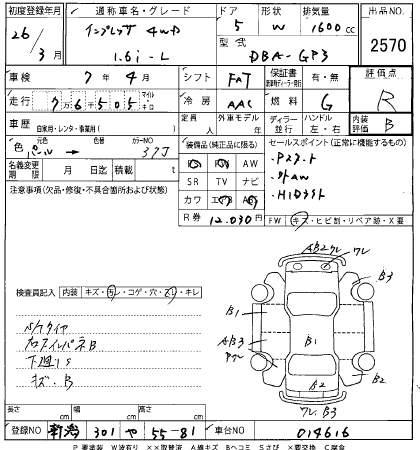 初度登録年月 通称車名・グレード ドア 形状 排気量 出品NO.
26 インプレッサ 4WD 5 W 1600cc
3月 1.6i-L 型式 DBA-GP3 2570
車検 7年 4月 シフト FAT 保証書 有・無 評価点
走行 76505 マイル キロ 冷房 AAC 燃料 G R
車歴 自家用・レンタ・事業用( ) 定員 人 外車モデル 年 ディーラー 並行 ハンドル 左・右 内装評価 B
色 元色 パール → 色替 カラーNO 37J 装備品(純正品に限る) セールスポイント(正常に機能するもの)
名義変更期限 月 日迄 積載 t AW
SR TV ナビ
注意事項(欠品・修復・不具合箇所および状態) カワ
・HIDライト
R券 12,030円 FW キズ・ヒビ割・リペア跡・X要
検査員記入 内装 キズ・汚レ・コゲ・穴・スレ・キレ
S/Tタイヤ
下廻りS
キズ・B
AB2 ワレ ワレ
B3
B1
AB3
B1
B2
B2
ワレ B3
長さ cm 幅 cm 高さ cm
登録NO 新潟 301 や 55-81 車台NO 014616
P 要塗装 W波有り ××取替済 A線キズ Bヘコミ Sさび ×要交換 C腐食